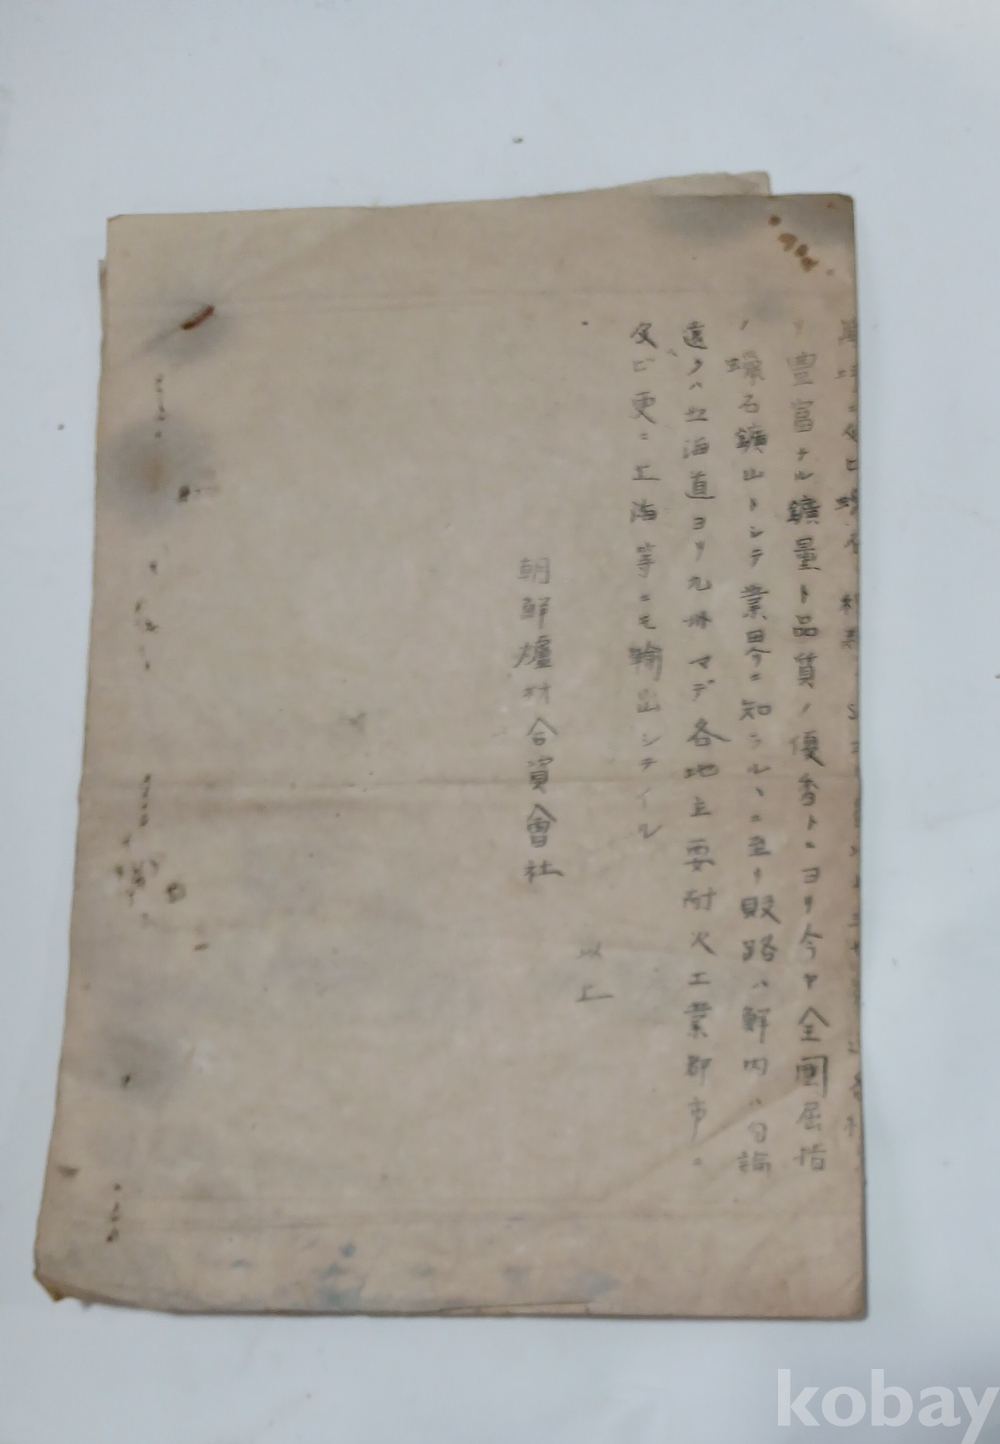 リ豊富ナル鑛量ト品質ノ優秀トニヨリ今ヤ全國屈指
ノ蝋石鑛山トシテ業界ニ知ラルヽニ至リ販路ハ鮮内ハ勿論
遠クハ北海道ヨリ九州マデ各地主要耐火工業都市ニ
及ビ更ニ上海等ニモ輸出シテイル
以上
朝鮮爐材合資會社
kobay